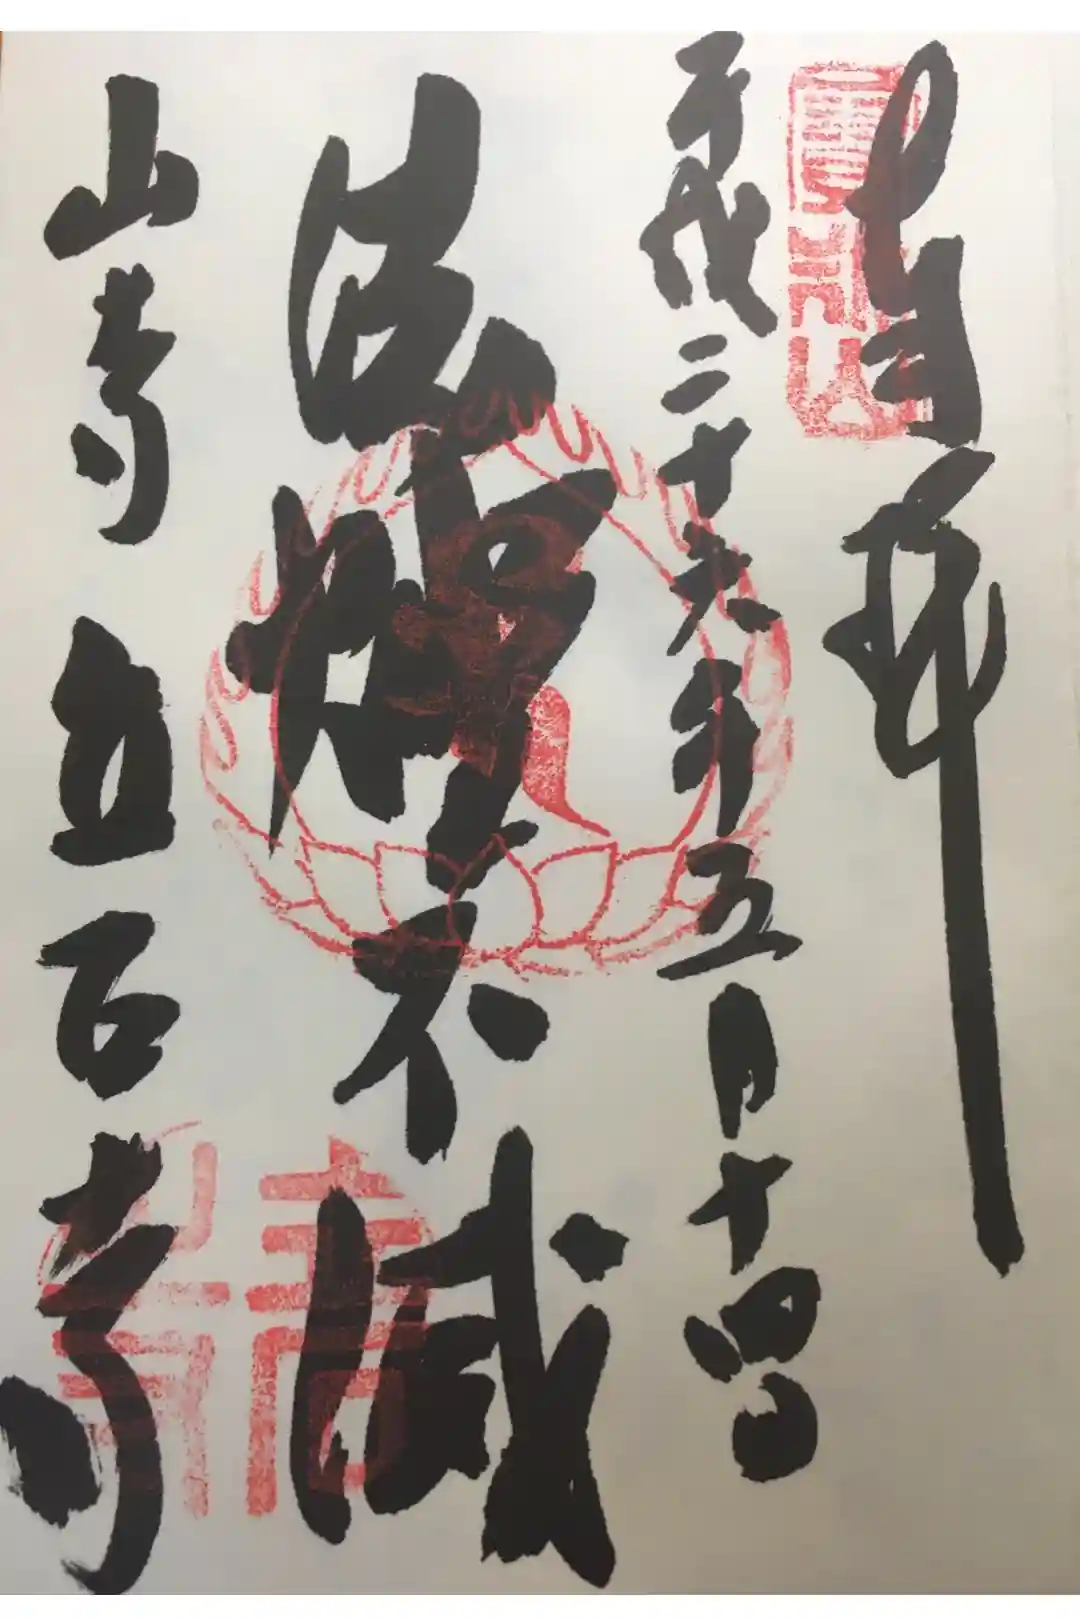 奉拝
寶珠山
平成二十六年五月十四日
法燈不滅
山寺 立石寺